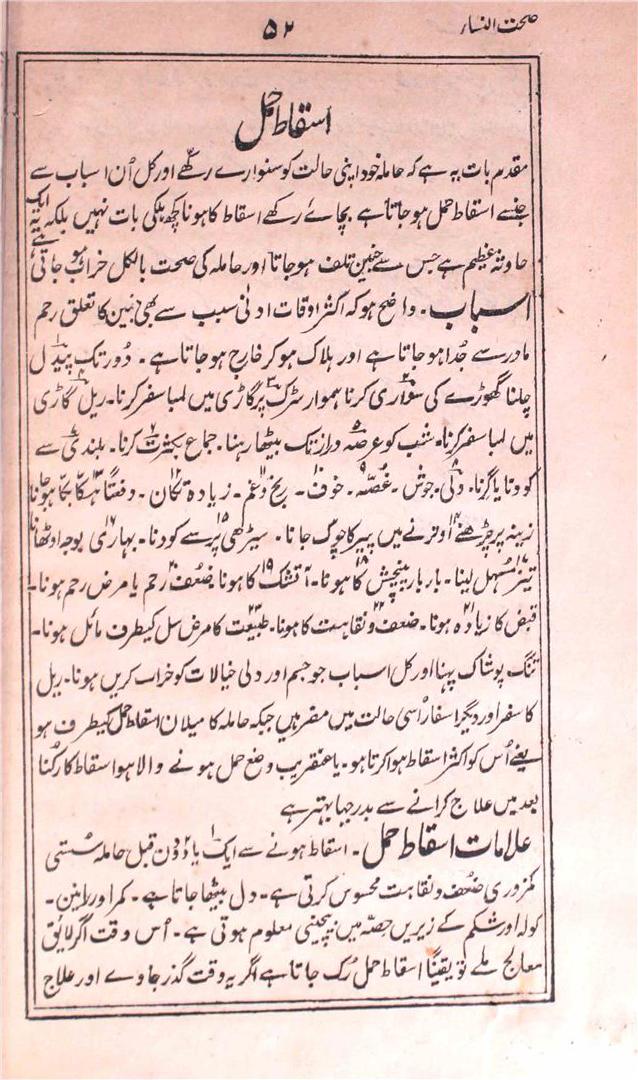 صحت النسار
۵۲
اسقاط حمل
مقدم بات یہ ہے کہ حاملہ خود اپنی حالت کو سنوارے رکھے اور کل اُن اسباب سے
جنسے اسقاط حمل ہو جاتا ہے بچائے رکھے اسقاط کا ہونا کچھ ہلکی بات نہیں بلکہ یہ ایک
حادثہ عظیم ہے جس سے جنین تلف ہو جاتا اور حاملہ کی صحت بالکل خراب ہو جاتی ہے
اسباب ۔ واضح ہو کہ اکثر اوقات ادنیٰ سبب سے بھی جنین کا تعلق رحم
مادر سے جُدا ہو جاتا ہے اور ہلاک ہو کر خارج ہو جاتا ہے ۔ دور تک پیدل
چلنا گھوڑے کی سواری کرنا ہموار سڑک پر گاڑی میں لمبا سفر کرنا ۔ ریل گاڑی
میں لمبا سفر کرنا ۔ شب کو عرصہ دراز تک بیٹھا رہنا ۔ جماع بکثرت کرنا ۔ بلندی سے
کودنا یا گرنا ۔ دلی جوش ۔ غصّہ ۔ خوف ۔ رنج و غم ۔ زیادہ تکان ۔ دفعتاً ہکا بکا ہو جانا
زینہ پر چڑھنے اوترنے میں پیر کا چوک جانا ۔ سیڑھی پر سے کودنا ۔ بہاری بوجہ اوٹھانا
تیز مسہل لینا ۔ بار بار پیچش کا ہونا ۔ آتشک کا ہونا ضعف رحم یا مرض رحم ہونا ۔
قبض کا زیادہ ہونا ۔ ضعف و نقاہت کا ہونا ۔ طبیعت کا مرض سل کیطرف مائل ہونا ۔
تنگ پوشاک پہنا اور کل اسباب جو جسم اور دلی خیالات کو خراب کریں ہونا ۔ ریل
کا سفر اور دیگر اسفار اُسی حالت میں مضر ہیں جبکہ حاملہ کا میلان اسقاط حمل کیطرف ہو
یعنے اُس کو اکثر اسقاط ہوا کرتا ہو ۔ یا عنقریب وضع حمل ہونے والا ہو اسقاط کا رکنا
بعد میں علاج کرانے سے بدرجہا بہتر ہے
علامات اسقاط حمل ۔ اسقاط ہونے سے ایک یا دو دن قبل حاملہ سُستی
کمزوری ضعف و نقاہت محسوس کرتی ہے ۔ دل بیٹھا جاتا ہے ۔ کمر اور رانین ۔
کولہ اور شکم کے زیریں حصّہ میں بیچینی معلوم ہوتی ہے ۔ اُس وقت اگر لائق
معالج ملے تو یقیناً اسقاط حمل رُک جاتا ہے اگر یہ وقت گذر جاوے اور علاج